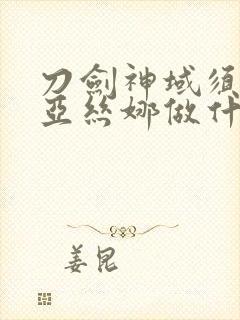 刀劍神域須
亞絲娜做什
姜昆